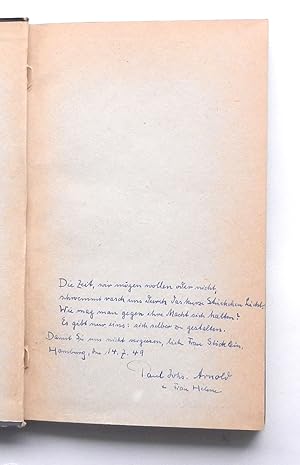 Die Zeit, wir mögen wollen oder nicht,
schwemmt rasch uns durch das kurze Stückchen Licht.
Wie mag man gegen ihre Macht sich halten?
Es gibt nur eins: sich selber zu gestalten.
Damit Sie uns nicht vergessen, liebe Frau Stöcklein.
Hamburg, den 14. 7. 49
Paul Johs. Arnold
u. Frau Helene